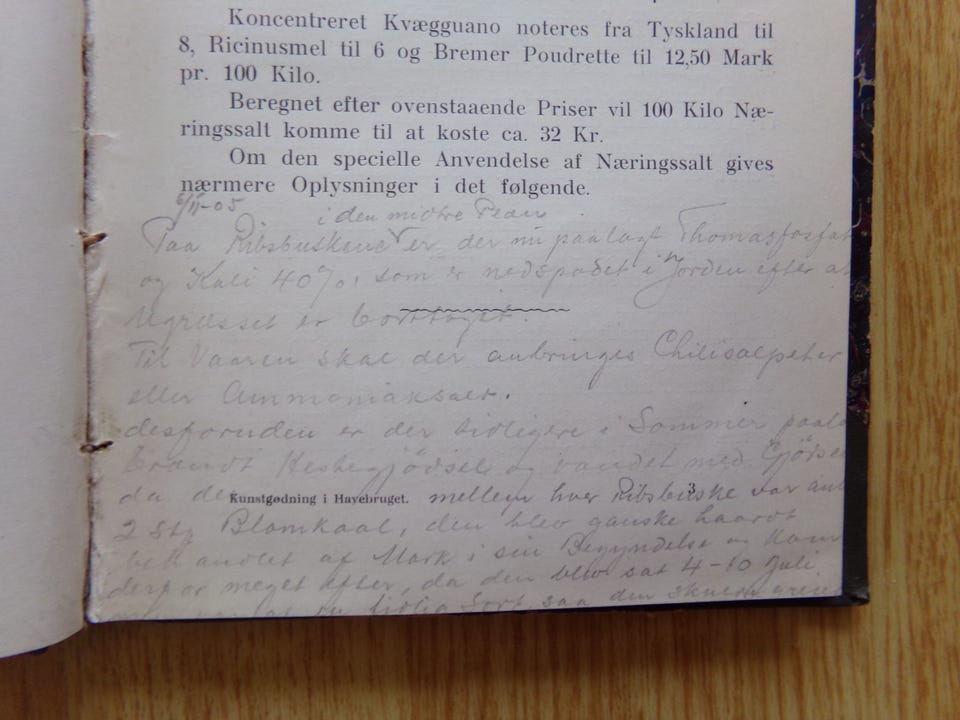 Koncentreret Kvægguano noteres fra Tyskland til
8, Ricinusmel til 6 og Bremer Poudrette til 12,50 Mark
pr. 100 Kilo.
Beregnet efter ovenstaaende Priser vil 100 Kilo Næ-
ringssalt komme til at koste ca. 32 Kr.
Om den specielle Anvendelse af Næringssalt gives
nærmere Oplysninger i det følgende.
6/11-05
i den midtre
Paa Ribsbuskene er der nu paalagt Thomasfosfat
og Kali 40%, som er nedspadet i Jorden efter at
Ugræsset er borttaget.
Til Vaaren skal der anbringes Chilisalpeter
eller Ammoniaksalt.
desforuden er der tidligere i Sommer
Hestegjödsel og vandet med
da mellem hver Ribsbuske var
Kunstgødning i Havebruget. 3
2 Blomkaal, den blev ganske haardt
behandlet af Mark i sin Begyndelse og kom
derfor meget efter, da den blev sat 4-10 Juli
tidlig Sort, saa den